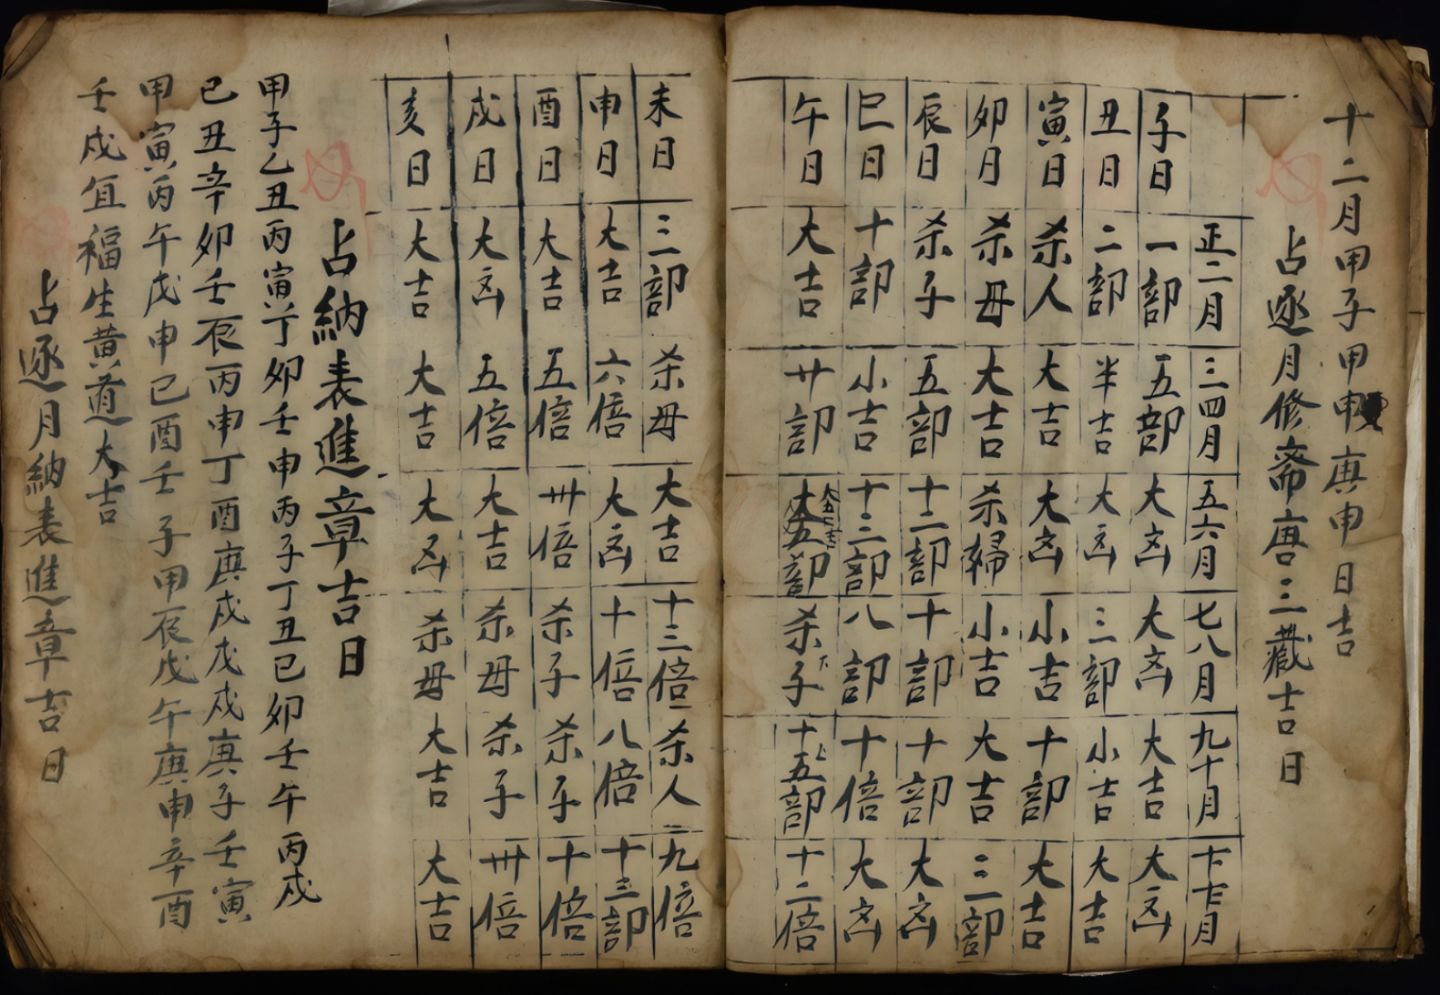 十二月甲子甲申庚申日吉
占逐月修斋唐三藏吉日
正二月 三四月 五六月 七八月 九十月 十十二月
子日 一部 五部 大凶 大凶 大吉 大凶
丑日 二部 半吉 大凶 三部 小吉 大吉
寅日 杀人 大吉 大凶 小吉 十部 大吉
卯日 杀母 大吉 杀婦 小吉 大吉 三部
辰日 杀子 五部 十二部 十部 十部 大凶
巳日 十部 小吉 十三部 八部 十倍 大凶
午日 大吉 廿部 五部 杀子 十五部 十二倍
未日 三部 杀母 大吉 十三倍 杀人 九倍
申日 大吉 六倍 大凶 十倍 八倍 十三部
酉日 大吉 五倍 卅倍 杀子 杀子 十倍
戌日 大凶 五倍 大吉 杀母 杀子 卅倍
亥日 大吉 大吉 大凶 杀母 大吉 大吉
占納表進章吉日
甲子乙丑丙寅丁卯壬申丙子丁丑己卯壬午丙戌
己丑辛卯壬辰丙申丁酉庚戌戊戌庚子壬寅
甲寅丙午戊申己酉壬子甲辰戊午庚申辛酉
壬戌宜福生黄道大吉
占逐月納表進章吉日